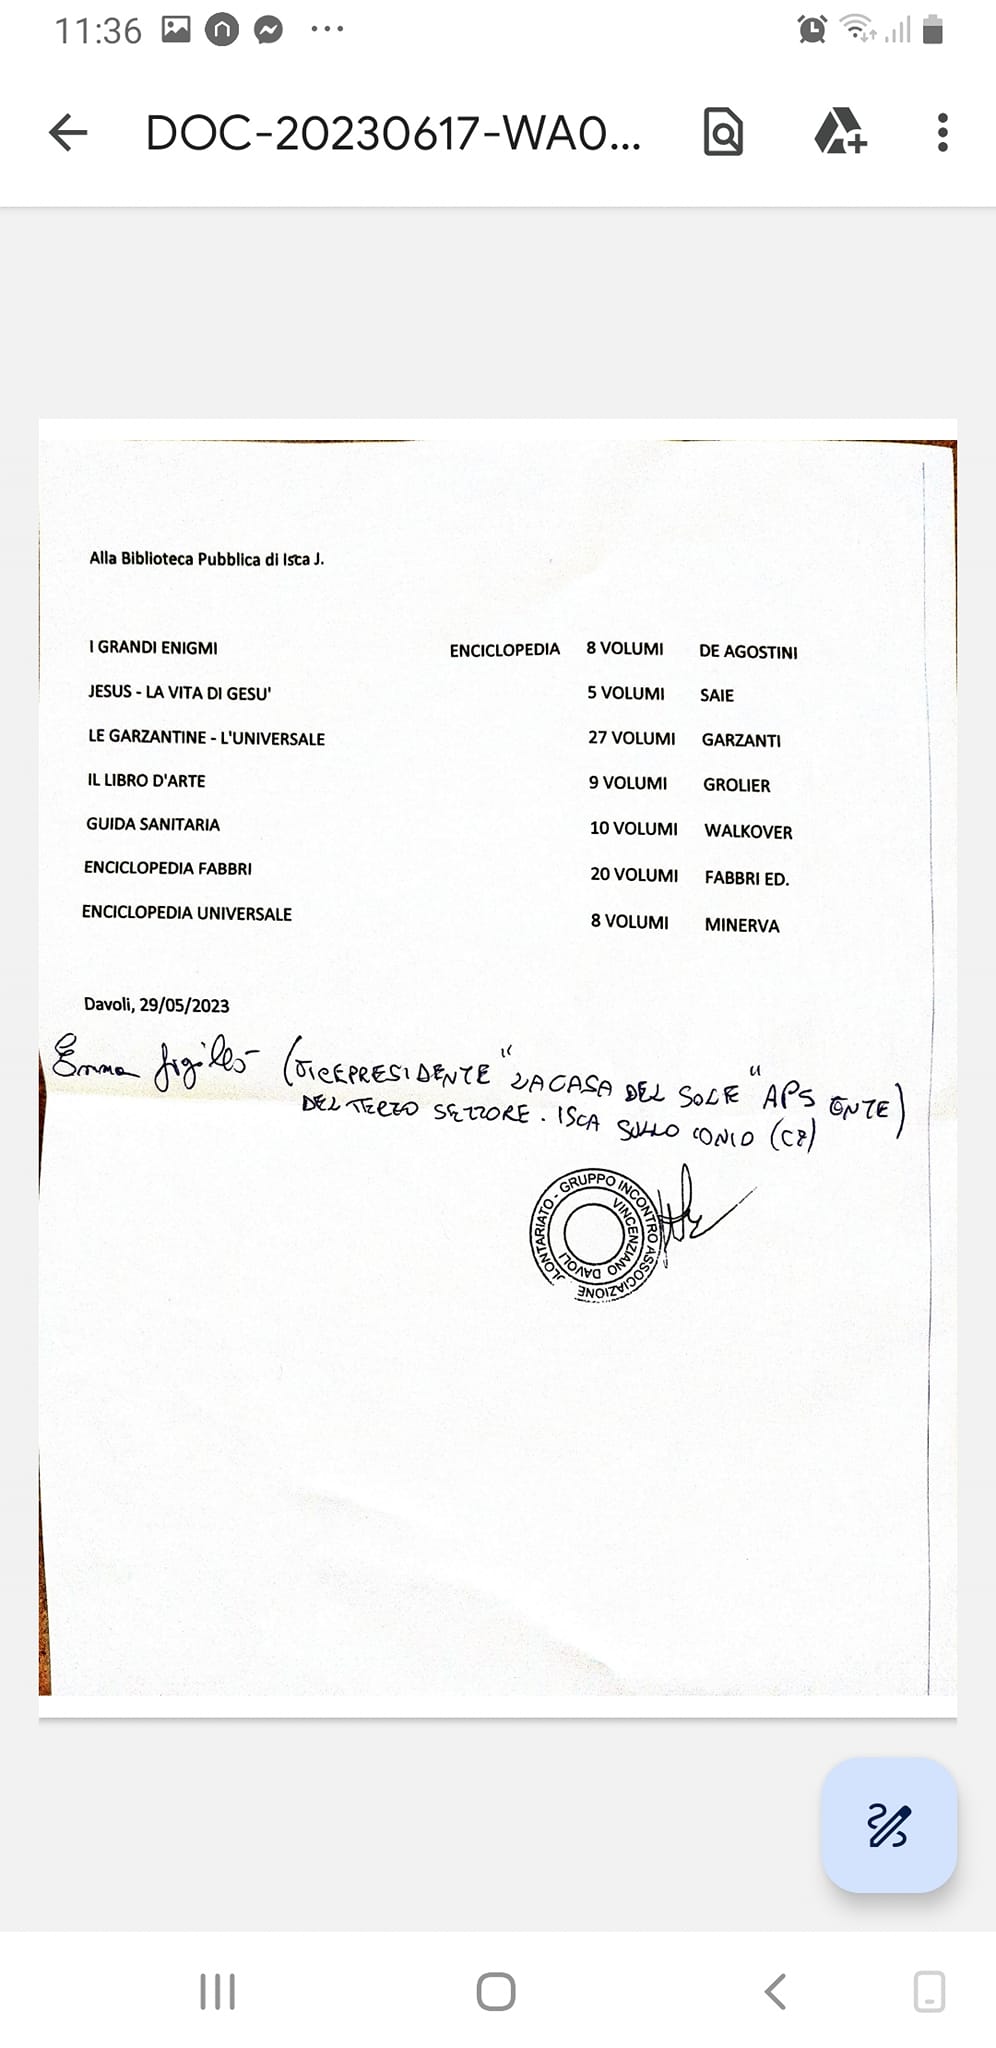 11:36
DOC-20230617-WA0...
Alla Biblioteca Pubblica di Isca J.
I GRANDI ENIGMI ENCICLOPEDIA 8 VOLUMI DE AGOSTINI
JESUS - LA VITA DI GESU' 5 VOLUMI SAIE
LE GARZANTINE - L'UNIVERSALE 27 VOLUMI GARZANTI
IL LIBRO D'ARTE 9 VOLUMI GROLIER
GUIDA SANITARIA 10 VOLUMI WALKOVER
ENCICLOPEDIA FABBRI 20 VOLUMI FABBRI ED.
ENCICLOPEDIA UNIVERSALE 8 VOLUMI MINERVA
Davoli, 29/05/2023
Emma (VICEPRESIDENTE "LA CASA DEL SOLE" APS ENTE)
DEL TERZO SETTORE. ISCA SULLO IONIO (CZ)
OLONTARIATO - GRUPPO INCONTRO ASSOCIAZIONE
VINCENZIANO DAVOLI